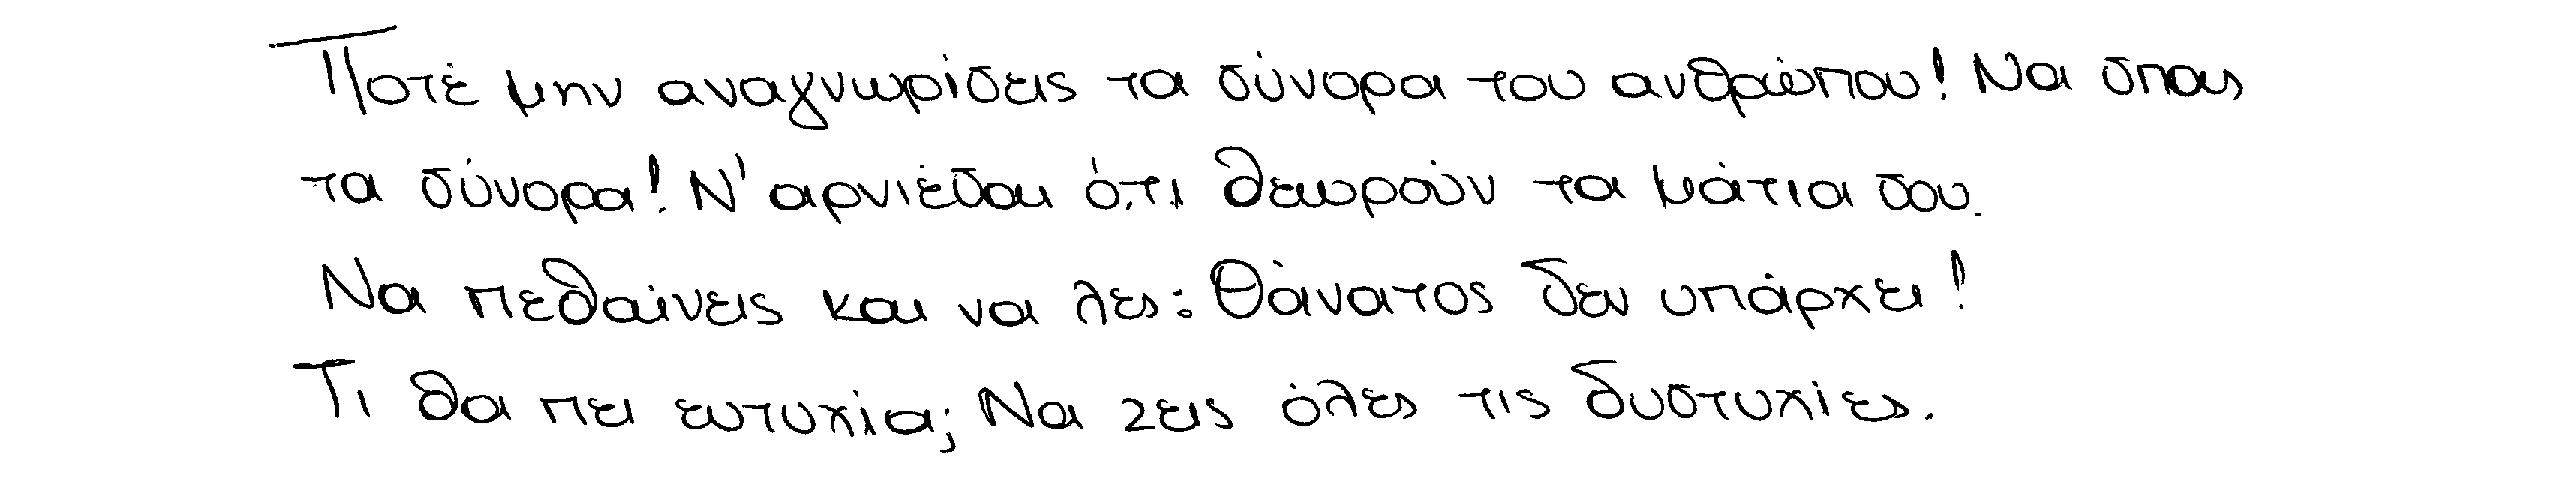 Ποτέ μην αναγνωρίσεις τα σύνορα του ανθρώπου! Να σπας
τα σύνορα! Ν' αρνιέσαι ό,τι θεωρούν τα μάτια σου.
Να πεθαίνεις και να λες: Θάνατος δεν υπάρχει!
Τι θα πει ευτυχία; Να ζεις όλες τις δυστυχίες.